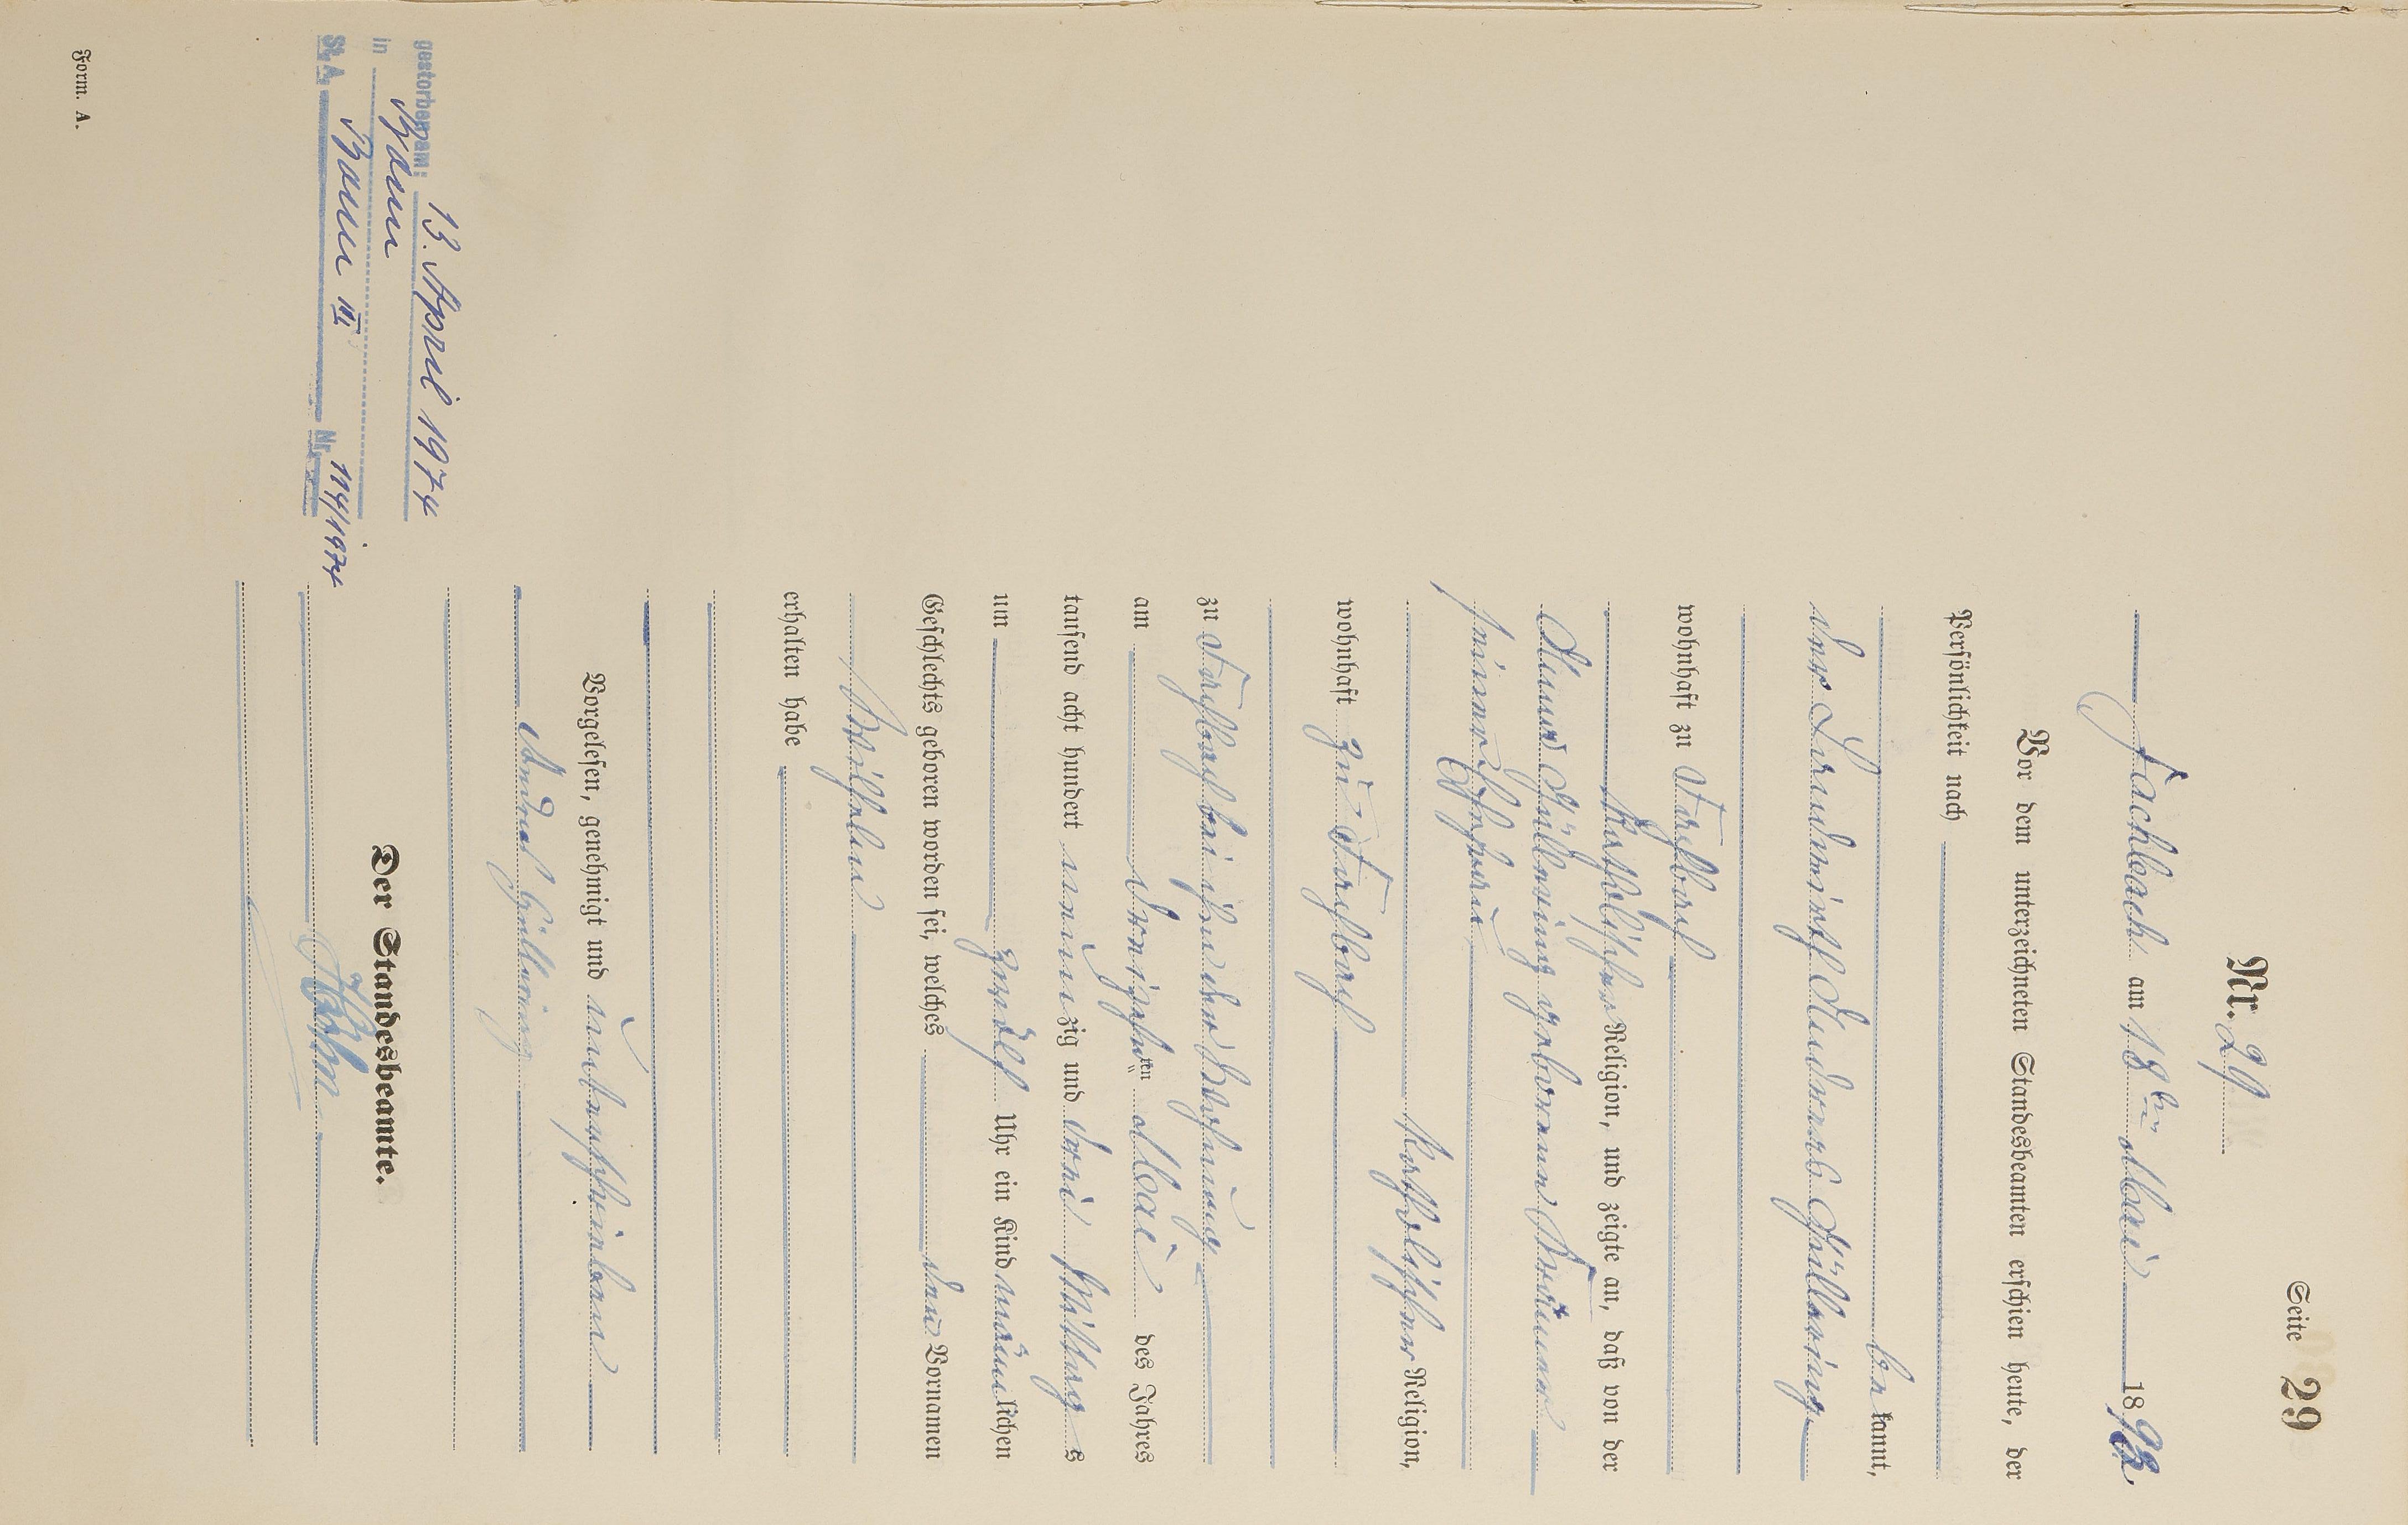 Seite 29
Nr. 29
Fachbach am 18ten Mai 1893.
Vor dem unterzeichneten Standesbeamten erschien heute, der
Persönlichkeit nach
be kannt,
der Landwirth Andreas Güllering
wohnhaft zu Fachbach
katholischer Religion, und zeigte an, daß von der
Anna Güllering geborenen
seiner Ehefrau
katholischer Religion,
wohnhaft zu Fachbach
zu Fachbach in der Wohnung
am dreizehnten Mai des Jahres
tausend acht hundert neunzig und drei Mittags
um zwölf Uhr ein Kind männlichen
Geschlechts geboren worden sei, welches den Vornamen
Wilhelm
erhalten habe
Vorgelesen, genehmigt und unterschrieben
Andreas Güllering
Der Standesbeamte.
gestorben am: 13. April 1974
in Bonn
St. A. Bonn III Nr. 114/1974
Form. A.